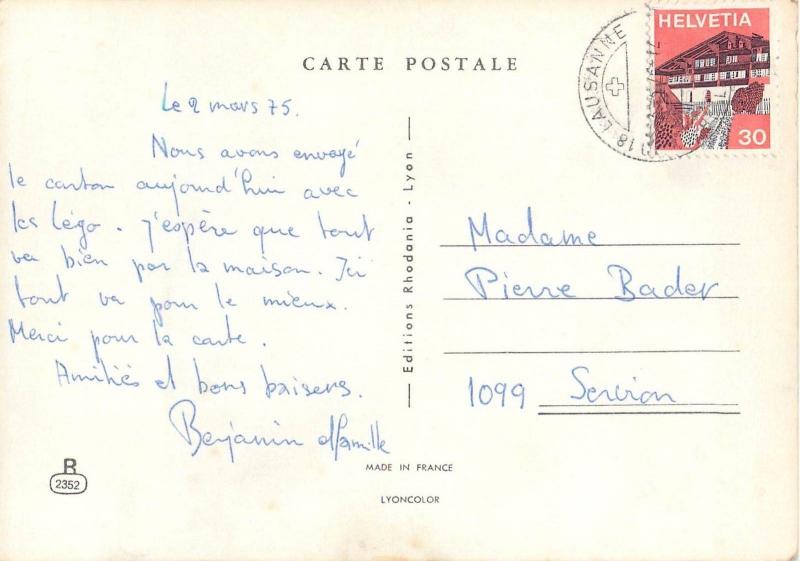 CARTE POSTALE
HELVETIA
30
LAUSANNE
Le 2 mars 75.
Nous avons envoyé
le carton aujourd'hui avec
les légo. J'espère que tout
va bien par la maison. Ici
tout va pour le mieux.
Merci pour la carte.
Amitiés et bons baisers.
Benjamin et famille
Editions Rhodania - Lyon
Madame
Pierre Bader
1099 Servion
R
2352
MADE IN FRANCE
LYONCOLOR